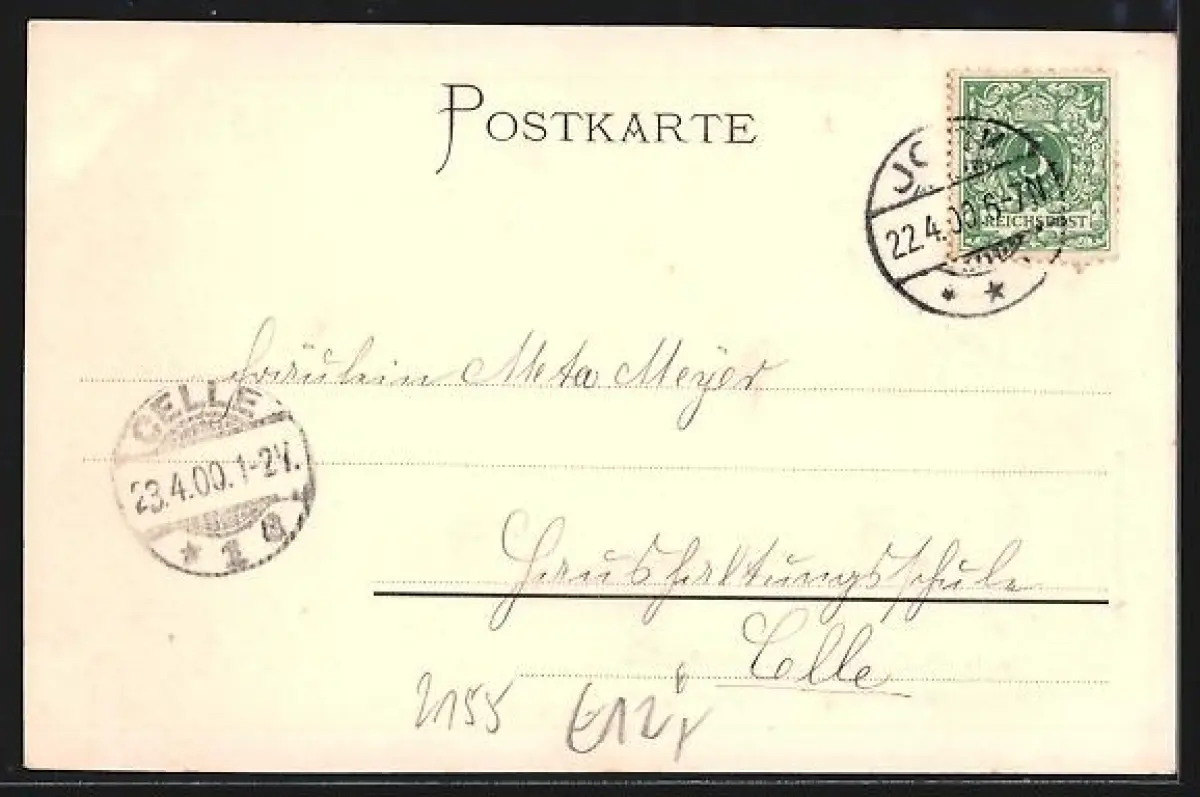 POSTKARTE
5
REICHSPOST
22.4.00.6-7N.
Fräulein Meta Meyer
CELLE
23.4.00.1-2V.
* 1 a
Haushaltungsschule
Celle
2155